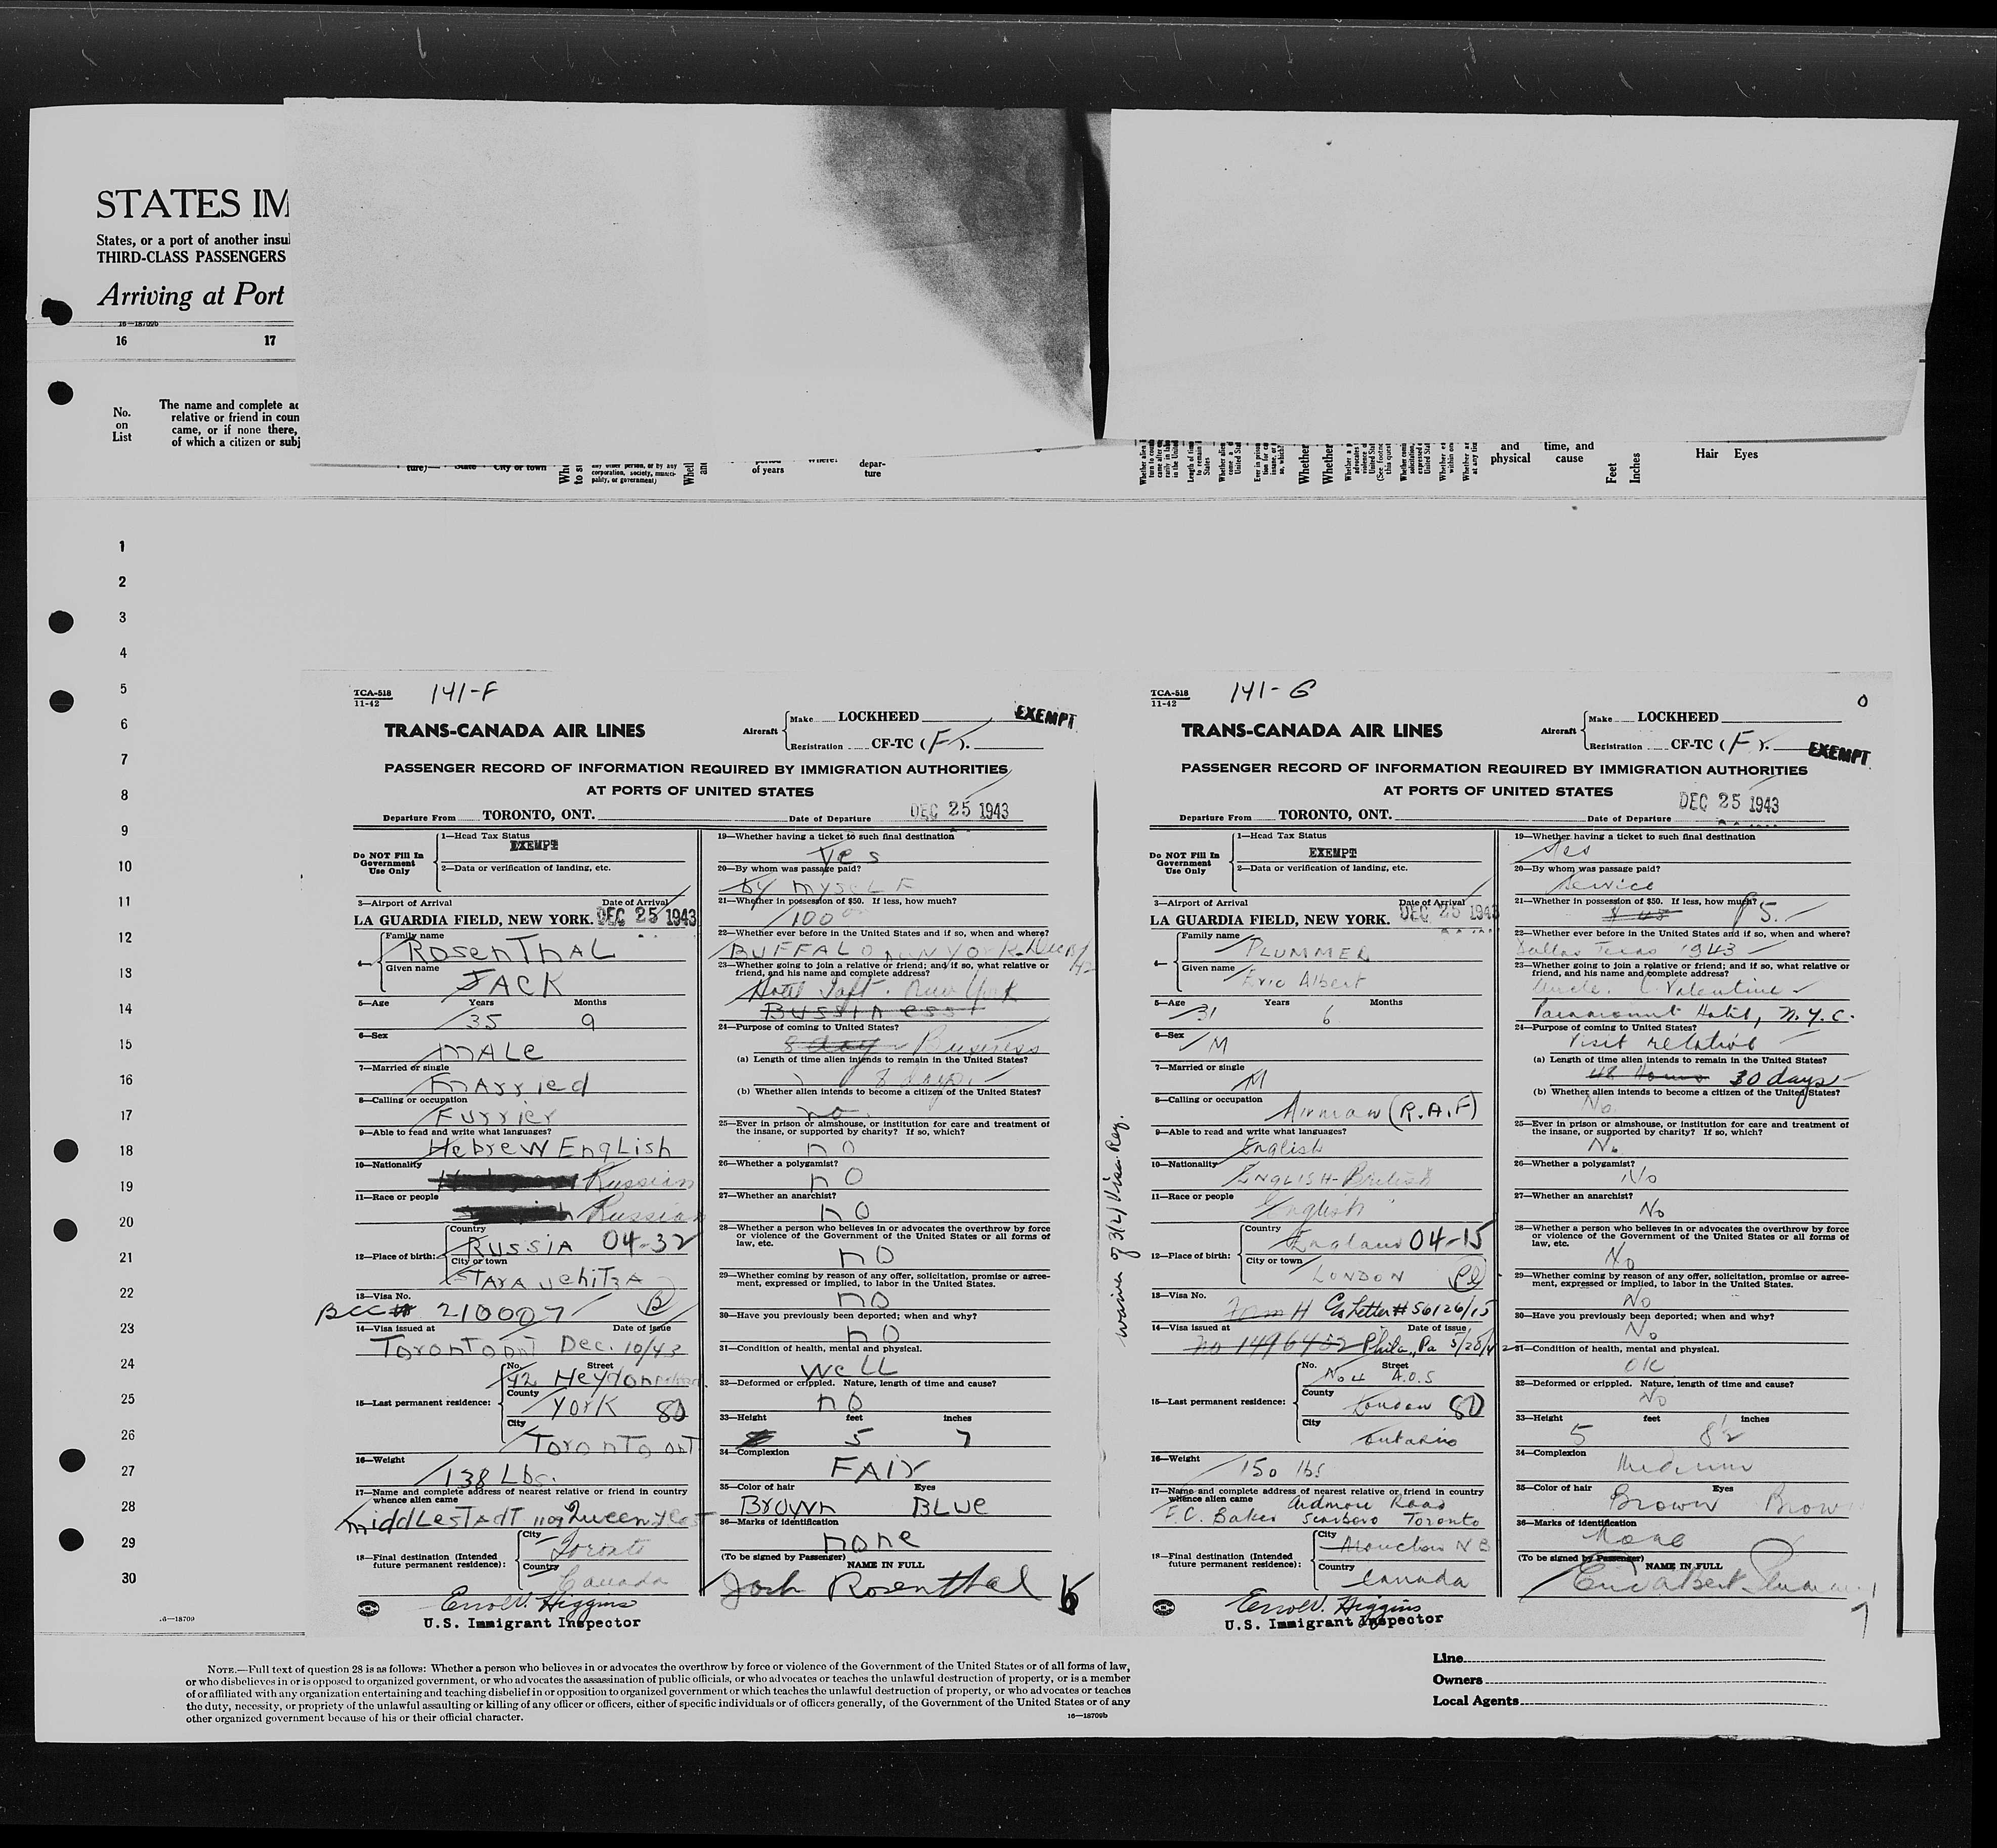 STATES IM
States, or a port of another insul
THIRD-CLASS PASSENGERS
Arriving at Port
16—18709b
16 17
No. on List
The name and complete ad
relative or friend in coun
came, or if none there,
of which a citizen or subj
ture) State City or town
any other person, or by any
corporation, society, munici-
pality, or government)
of years
depar-
ture
and
physical
time, and
cause
Feet
Inches
Hair Eyes
1
2
3
4
5
6
7
8
9
10
11
12
13
14
15
16
17
18
19
20
21
22
23
24
25
26
27
28
29
30
16—18709
TCA-518
11-42
141-F
TRANS-CANADA AIR LINES
Aircraft Make LOCKHEED
Registration CF-TC (F).
EXEMPT
PASSENGER RECORD OF INFORMATION REQUIRED BY IMMIGRATION AUTHORITIES
AT PORTS OF UNITED STATES
Departure From TORONTO, ONT. Date of Departure DEC 25 1943
Do NOT Fill In Government Use Only
1—Head Tax Status
EXEMPT
2—Data or verification of landing, etc.
3—Airport of Arrival Date of Arrival
LA GUARDIA FIELD, NEW YORK. DEC 25 1943
4— Family name
RosenTHAL
Given name
JACK
5—Age Years Months
35 9
6—Sex
MALe
7—Married or single
MArried
8—Calling or occupation
Furrier
9—Able to read and write what languages?
HebreW EngLish
10—Nationality
Russian
11—Race or people
Russian
12—Place of birth: Country
RUSSIA 04-32
City or town
13—Visa No.
BCC# 210007 B
14—Visa issued at Date of issue
Toronto ont Dec. 10/43
15—Last permanent residence: No. Street
42 Heydon
County
York 80
City
Toronto ont
16—Weight
138 Lbs.
17—Name and complete address of nearest relative or friend in country
whence alien came
MiddLesTAdT 1109 Queen
18—Final destination (Intended
future permanent residence):
City
Toronto
Country
Canada
Errol V. Higgins
U.S. Immigrant Inspector
19—Whether having a ticket to such final destination
Yes
20—By whom was passage paid?
by mysELF
21—Whether in possession of $50. If less, how much?
100
22—Whether ever before in the United States and if so, when and where?
BUFFALO
23—Whether going to join a relative or friend; and if so, what relative or
friend, and his name and complete address?
Hotel Taft. New York
Bussiness
24—Purpose of coming to United States?
8 day Business
(a) Length of time alien intends to remain in the United States?
8 days.
(b) Whether alien intends to become a citizen of the United States?
no.
25—Ever in prison or almshouse, or institution for care and treatment of
the insane, or supported by charity? If so, which?
no
26—Whether a polygamist?
no
27—Whether an anarchist?
no
28—Whether a person who believes in or advocates the overthrow by force
or violence of the Government of the United States or all forms of
law, etc.
no
29—Whether coming by reason of any offer, solicitation, promise or agree-
ment, expressed or implied, to labor in the United States.
no
30—Have you previously been deported; when and why?
no
31—Condition of health, mental and physical.
weLL
32—Deformed or crippled. Nature, length of time and cause?
no
33—Height feet inches
5 7
34—Complexion
FAir
35—Color of hair Eyes
Brown BLue
36—Marks of identification
none
(To be signed by Passenger) NAME IN FULL
Jack Rosenthal
6
waiver of 3(2) Visa Reg.
TCA-518
11-42
141-G
0
TRANS-CANADA AIR LINES
Aircraft Make LOCKHEED
Registration CF-TC (F).
EXEMPT
PASSENGER RECORD OF INFORMATION REQUIRED BY IMMIGRATION AUTHORITIES
AT PORTS OF UNITED STATES
Departure From TORONTO, ONT. Date of Departure DEC 25 1943
Do NOT Fill In Government Use Only
1—Head Tax Status
EXEMPT
2—Data or verification of landing, etc.
3—Airport of Arrival Date of Arrival
LA GUARDIA FIELD, NEW YORK. DEC 25 1943
4— Family name
PLUMMER
Given name
Eric Albert
5—Age Years Months
31 6
6—Sex
M
7—Married or single
M
8—Calling or occupation
Airman (R.A.F)
9—Able to read and write what languages?
English
10—Nationality
ENGLISH-British
11—Race or people
English
12—Place of birth: Country
England 04-15
City or town
LONDON
13—Visa No.
Form H Co Letter # 56126/15
14—Visa issued at Date of issue
no 1496452 Phila., Pa 5/28/42
15—Last permanent residence: No. Street
No 4 A.O.S
County
London 80
City
Ontario
16—Weight
150 lbs
17—Name and complete address of nearest relative or friend in country
whence alien came Ardmore Road
F.C. Baker Scarboro Toronto
18—Final destination (Intended
future permanent residence):
City
Moncton N B
Country
Canada
Errol V. Higgins
U.S. Immigrant Inspector
19—Whether having a ticket to such final destination
Yes
20—By whom was passage paid?
Service
21—Whether in possession of $50. If less, how much?
$5.
22—Whether ever before in the United States and if so, when and where?
Dallas Texas 1943
23—Whether going to join a relative or friend; and if so, what relative or
friend, and his name and complete address?
Uncle. C. Valentine
Paramount Hotel, N.Y.C.
24—Purpose of coming to United States?
Visit relative
(a) Length of time alien intends to remain in the United States?
48 Hours 30 days
(b) Whether alien intends to become a citizen of the United States?
No
25—Ever in prison or almshouse, or institution for care and treatment of
the insane, or supported by charity? If so, which?
No
26—Whether a polygamist?
No
27—Whether an anarchist?
No
28—Whether a person who believes in or advocates the overthrow by force
or violence of the Government of the United States or all forms of
law, etc.
No
29—Whether coming by reason of any offer, solicitation, promise or agree-
ment, expressed or implied, to labor in the United States.
No
30—Have you previously been deported; when and why?
No
31—Condition of health, mental and physical.
OK
32—Deformed or crippled. Nature, length of time and cause?
No
33—Height feet inches
5 8½
34—Complexion
Medium
35—Color of hair Eyes
Brown Brown
36—Marks of identification
None
(To be signed by Passenger) NAME IN FULL
Eric Albert Plummer
7
NOTE.—Full text of question 28 is as follows: Whether a person who believes in or advocates the overthrow by force or violence of the Government of the United States or of all forms of law,
or who disbelieves in or is opposed to organized government, or who advocates the assassination of public officials, or who advocates or teaches the unlawful destruction of property, or is a member
of or affiliated with any organization entertaining and teaching disbelief in or opposition to organized government or which teaches the unlawful destruction of property, or who advocates or teaches
the duty, necessity, or propriety of the unlawful assaulting or killing of any officer or officers, either of specific individuals or of officers generally, of the Government of the United States or of any
other organized government because of his or their official character.
16—18709b
Line
Owners
Local Agents